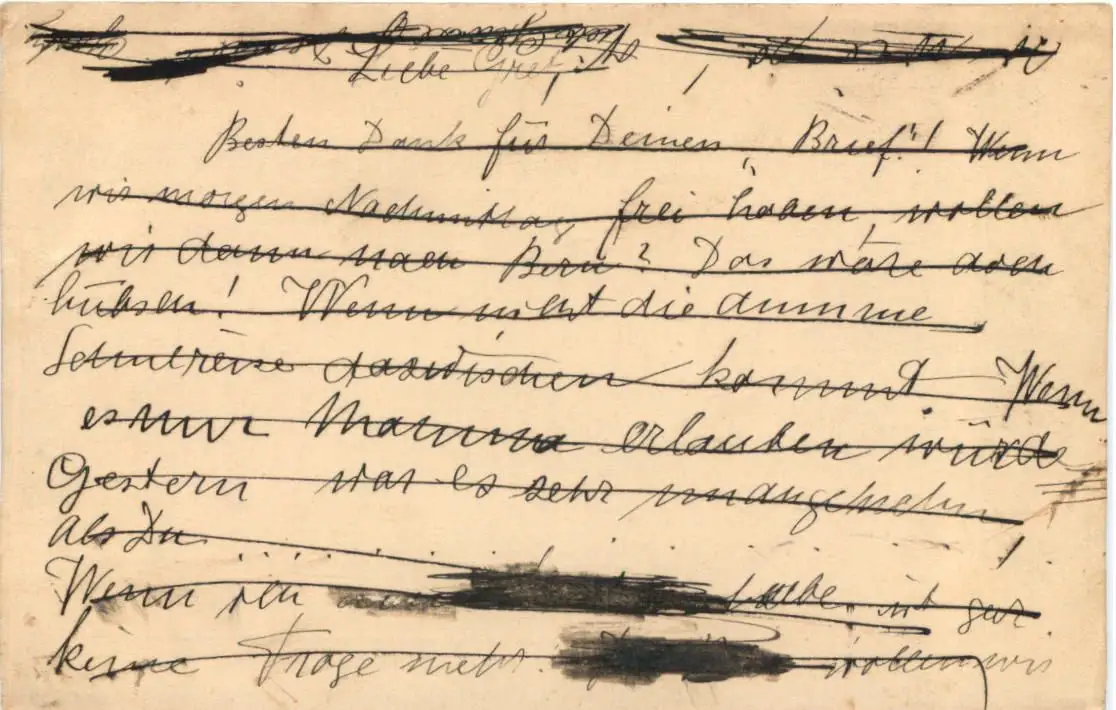 Liebe
Besten Dank für Deinen Brief! Wenn
wir morgen Nachmittag frei haben wollen
wir dann nach Bern? Das wäre doch
hübsch! Wenn nicht die dumme
Schulreise dazwischen kommt. Wenn
es nur Mamma erlauben würde
Gestern war es sehr unangenehm
als Du
Wenn ich habe, ist gar
keine Frage mehr. wollen wir